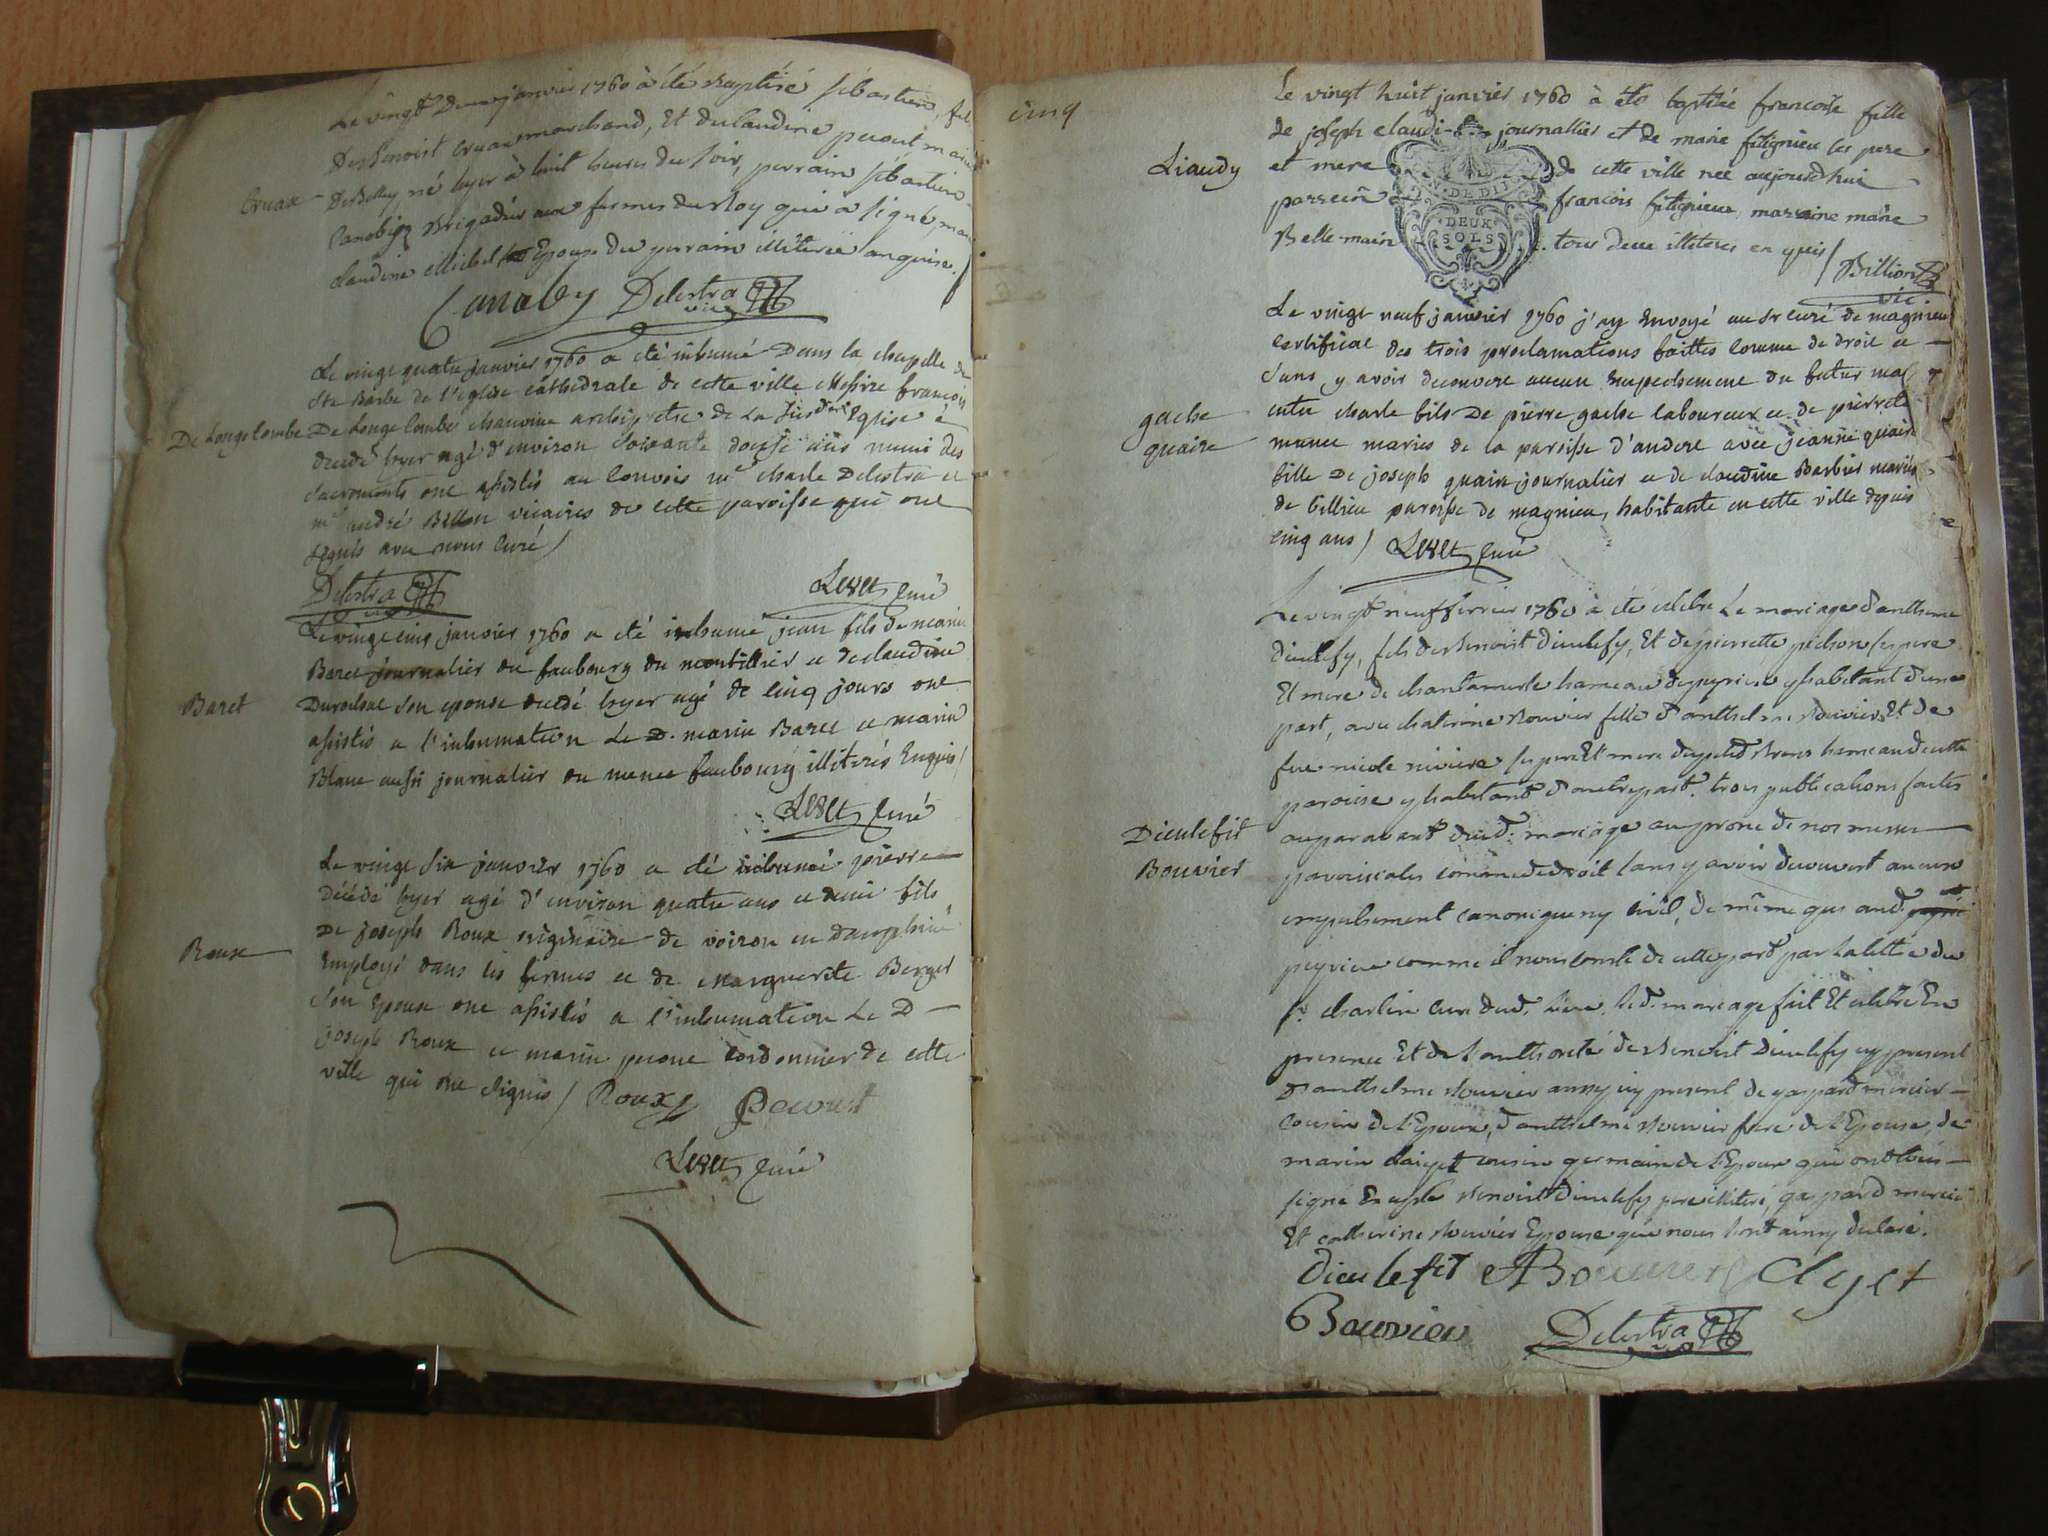 Le vingt deux janvier 1760 à été Baptisé sébastien, fils
De Benoist Cruax marchand, Et de Claudine perout mariés
Cruax
De Belley né hyer à huit heures du soir, parrain sébastien
Canoby Brigadier aux fermes du Roy qui a signé, maraine
Claudine Michel Epouse du parrain illiterée enquise /
Canoby Delestra vic
Le vingt quatre janvier 1760 a été inhumé Dans la chapelle de
Ste Barbe de l'eglise cathedrale de cette ville Messire françois
De Longecombe
De Longecombe chanoine archipretre de la susditte Eglise
decedé hyer agé d'environ soixante douse ans muni des
sacrements ont assistés au convois mre charle Delestra et
mre andré Billion vicaires de cette paroisse qui ont
signés avec nous curé /
Delestra vic
Levet curé
Le vingt cinq janvier 1760 a été inhumé jean fils de marin
Baret journalier du faubourg du et de claudine
Baret
son epouse decedé hyer agé de cinq jours ont
assistés a l'inhumation Le D. marin Baret et marin
Blanc aussi journalier du meme faubourg illiterés Enquis /
Levet curé
Le vingt six janvier 1760 a été inhumé pierre
décédé hyer agé d'environ quatre ans et demi fils
De joseph Roux originaire de voiron en Dauphiné
Roux
Employé dans les fermes et de Marguerite Berger
son epouse ont assistés a l'inhumation Le D
joseph Roux et marin perout cordonnier de cette
ville qui ont signés / Roux
Levet curé
cinq
Le vingt huit janvier 1760 à été baptisée francoise fille
de joseph claudi journallier et de marie fitignieu ses pere
Liaudy
et mere de cette ville née aujourdhui
parrein françois fitignieux, marraine marie
Belle main tous deux illiteres enquis / Billion
vic
N DE DIJ
DEUX
SOLS
Le vingt neuf janvier 1760 j'ay Envoyé au sr curé de magnieu
certificat des trois proclamations faittes comme de droit et
sans y avoir decouvert aucun empechement du futur mariage
gache
quaire
entre charle fils De pierre gache laboureux et de pierrete
mariés de la paroisse d'andert avec jeanne quaire
fille De joseph quaire journalier et de claudine Barbier mariés
de Billieu paroisse de magnieu, habitante en cette ville depuis
cinq ans / Levet curé
Le vingt neuf fevrier 1760 à été celebré Le mariage d'anthelme
dieulefy, fils de Benoist dieulefy, Et de pierrette pichon ses pere
Et mere de chantemerle hameau de peyrieu y habitant d'une
part, avec chaterine Bouvier fille d'anthelme Bouvier, Et de
feue nicole riviere ses pere Et mere hameau de cette
paroisse y habitant d'autre part. trois publications faites
Dieulefit
auparavant dud. mariage au prone de nos messes
Bouvier
paroissiales comme de droit sans y avoir decouvert aucun
empechement canonique ny civil, de même que aud.
peyrieu comme il nous conste de cette part par la lettre du
sr charlin curé dud. lieu. led. mariage fait Et celebré En
presence Et de l'authorité de Benoist Dieulefy icy present
D'anthelme Bouvier aussy icy present de gaspard mercier
cousin de l'Epoux, d'anthelme Bouvier frere de l'Epouse, de
marin claiget cousin germain de l'Epoux qui ont tous
signé Excepté Benoist Dieulefy pere illiteré, gaspard mercier
Et catherine Bouvier Epouse que nous ont ainsy declaré.
Dieulefit ABouvier Clyet
Bouvier Delestra vic